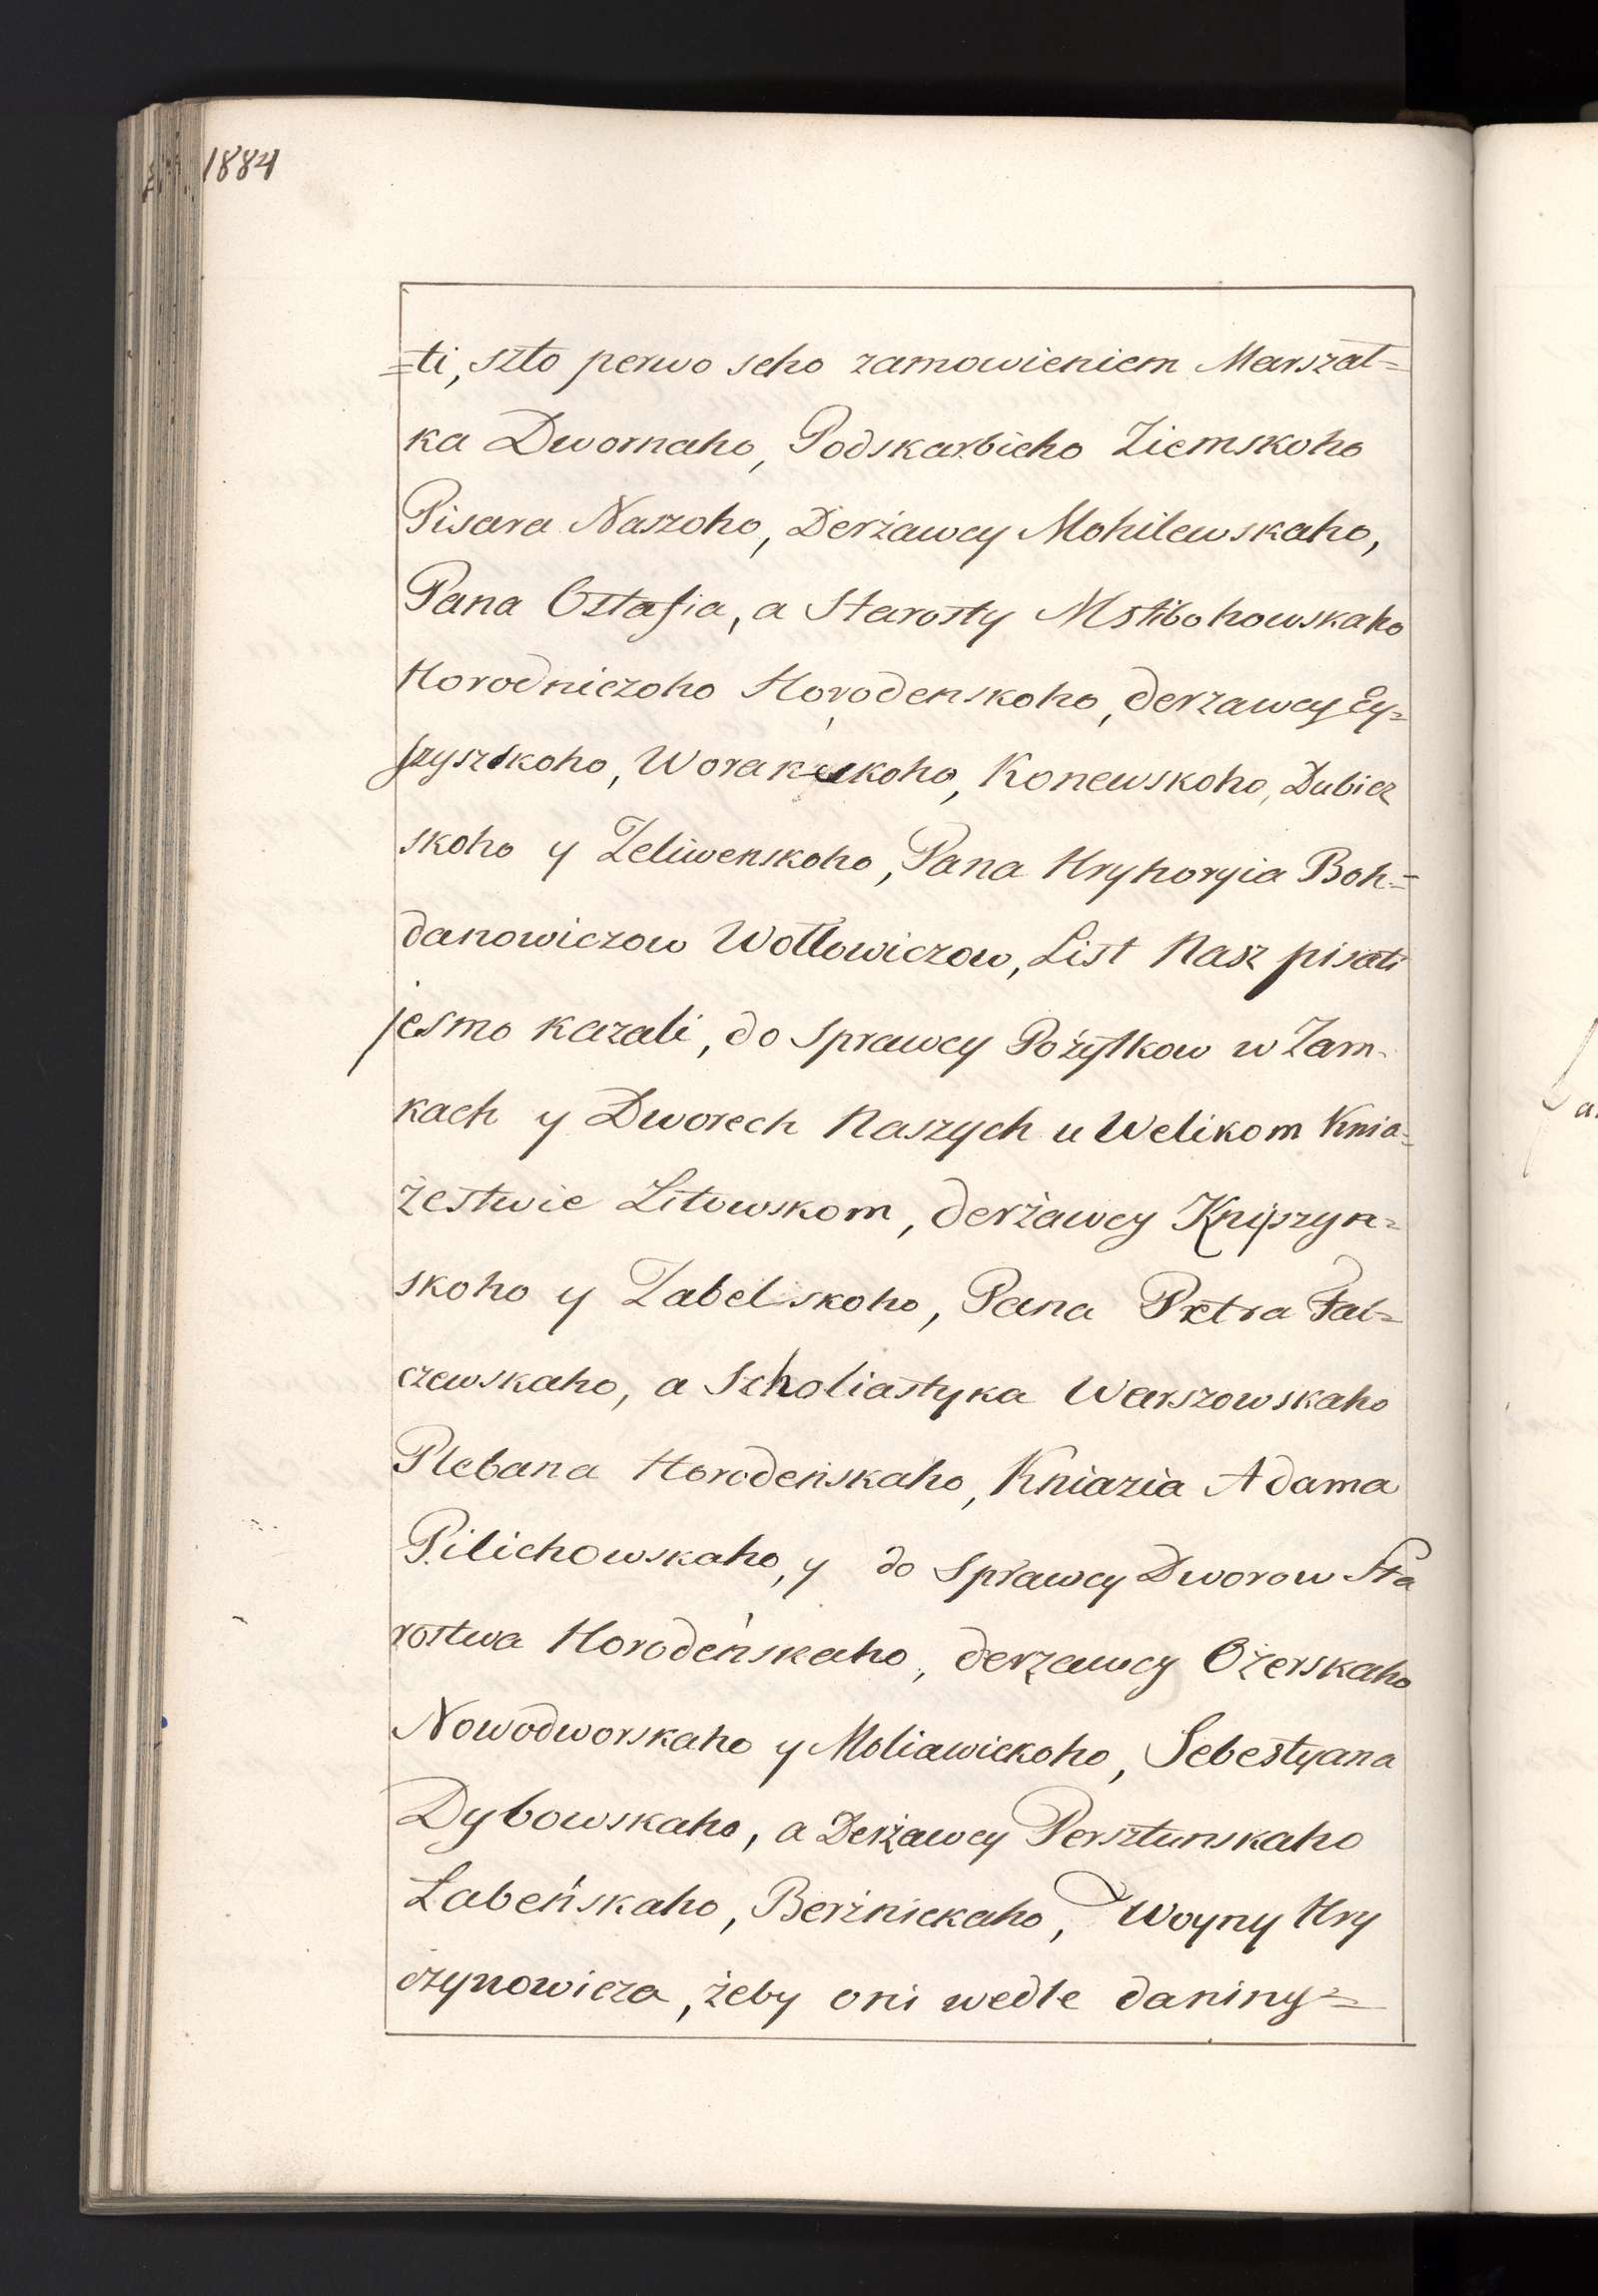 1884
=ti, szto perwo seho zamowieniem Marszał=
ka Dwornaho, Podskarbieho Ziemskoho
Pisara Naszoho, Derżawcy Mohilewskaho,
Pana Ostafia, a Starosty Mstibohowskaho
Horodniczoho Horodenskoho, derzawcy Ey=
szyszskoho, Konewskoho, Dubicz
skoho y Zeliwenskoho, Pana Hryhoryia Boh=
danowiczow Wołłowiczow, List Nasz pisati
jesmo kazali, do Sprawcy Pożytkow w Zam-
kach y Dworech Naszych u Welikom Knia=
żestwie Litowskom, derżawcy Knyszyn=
skoho y Zabelskoho, Pana Petra Fal=
czewskaho, a Scholiastyka Warszowskaho
Plebana Horodeńskaho, Kniazia Adama
Pilichowskaho, y do Sprawcy Dworow Sta
rostwa Horodeńskaho, derżawcy Ożerskaho
Nowodworskaho y Moliawickoho, Sebestyana
Dybowskaho, a Derżawcy Persztunskaho
Labeńskaho, Berżnickaho, Woyny Hry
czynowicza, żeby oni wedle daniny=